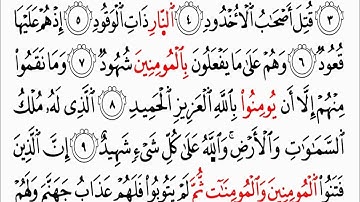 ﴿٣﴾ قُتِلَ أَصْحَٰبُ ٱلْأُخْدُودِ ﴿٤﴾ ٱلنَّارِ ذَاتِ ٱلْوَقُودِ ﴿٥﴾ إِذْ هُمْ عَلَيْهَا
قُعُودٌ ﴿٦﴾ وَهُمْ عَلَىٰ مَا يَفْعَلُونَ بِٱلْمُؤْمِنِينَ شُهُودٌ ﴿٧﴾ وَمَا نَقَمُوا۟
مِنْهُمْ إِلَّآ أَن يُؤْمِنُوا۟ بِٱللَّهِ ٱلْعَزِيزِ ٱلْحَمِيدِ ﴿٨﴾ ٱلَّذِى لَهُۥ مُلْكُ
ٱلسَّمَٰوَٰتِ وَٱلْأَرْضِ ۚ وَٱللَّهُ عَلَىٰ كُلِّ شَىْءٍ شَهِيدٌ ﴿٩﴾ إِنَّ ٱلَّذِينَ
فَتَنُوا۟ ٱلْمُؤْمِنِينَ وَٱلْمُؤْمِنَٰتِ ثُمَّ لَمْ يَتُوبُوا۟ فَلَهُمْ عَذَابُ جَهَنَّمَ وَلَهُمْ